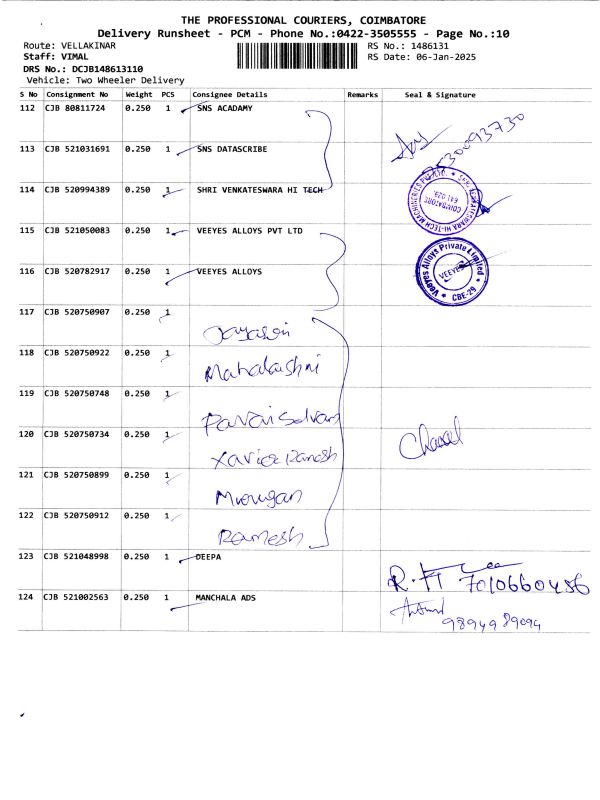 THE PROFESSIONAL COURIERS, COIMBATORE
Delivery Runsheet - PCM - Phone No.:0422-3505555 - Page No.:10
Route: VELLAKINAR RS No.: 1486131
Staff: VIMAL RS Date: 06-Jan-2025
DRS No.: DCJB148613110
Vehicle: Two Wheeler Delivery
S No Consignment No Weight PCS Consignee Details Remarks Seal & Signature
112 CJB 80811724 0.250 1 SNS ACADAMY
113 CJB 521031691 0.250 1 SNS DATASCRIBE
114 CJB 520994389 0.250 1 SHRI VENKATESWARA HI TECH
COIMBATORE
641 029.
115 CJB 521050083 0.250 1 VEEYES ALLOYS PVT LTD
Veeyes Alloys Private Limited
VEEYES
CBE-29
116 CJB 520782917 0.250 1 VEEYES ALLOYS
117 CJB 520750907 0.250 1
118 CJB 520750922 0.250 1
119 CJB 520750748 0.250 1
120 CJB 520750734 0.250 1
121 CJB 520750899 0.250 1
Murugan
122 CJB 520750912 0.250 1
Ramesh
123 CJB 521048998 0.250 1 DEEPA
7010660456
124 CJB 521002563 0.250 1 MANCHALA ADS
9894989094